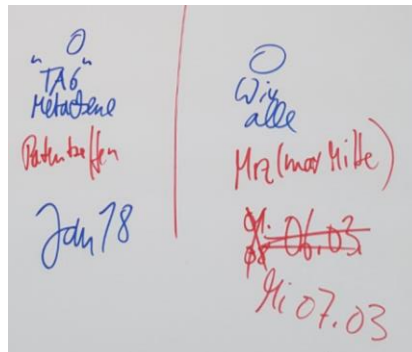 O
"TAG"
Metaebene
Patentreffen
Jan 18
O
Wir
alle
Mrz (max Mitte)
06.03.
Mi 07.03